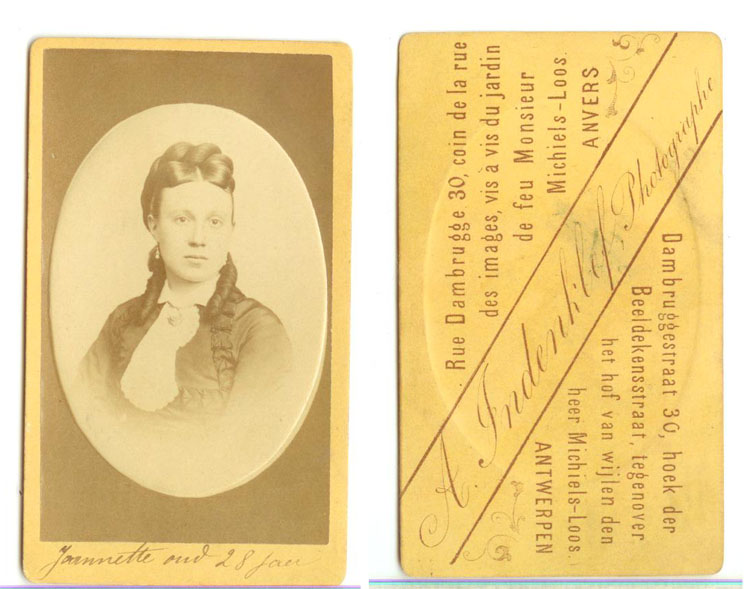 Jeannette oud 28 jaar
Rue Dambrugge 30, coin de la rue
des images, vis à vis du jardin
de feu Monsieur
Michiels-Loos.
ANVERS
A. Indenklef Photographe
Dambruggestraat 30, hoek der
Beeldekensstraat, tegenover
het hof van wijlen den
heer Michiels-Loos.
ANTWERPEN